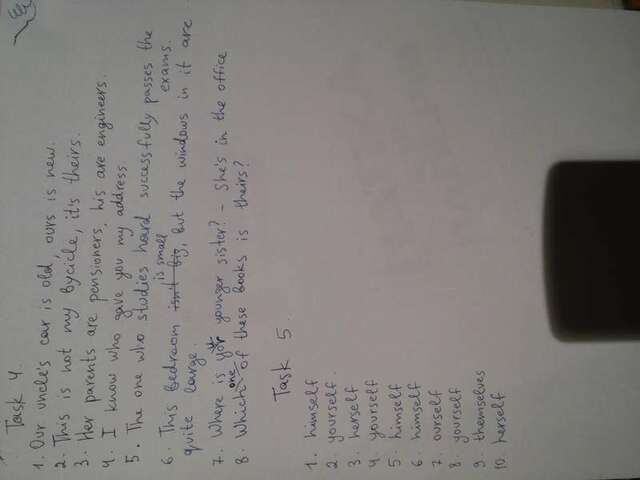 Task 4.
1. Our uncle's car is old, ours is new.
2. This is not my bycicle, it's theirs.
3. Her parents are pensioners, his are engineers.
4. I know who gave you my address.
5. The one who studies hard successfully passes the
exams.
6. This bedroom isn't big is small, but the windows in it are
quite large.
7. Where is your younger sister? - She's in the office
8. Which one of these books is theirs?
Task 5.
1. himself
2. yourself.
3. herself
4. yourself
5. himself
6. himself
7. ourself
8. yourself
9. themselves
10. herself